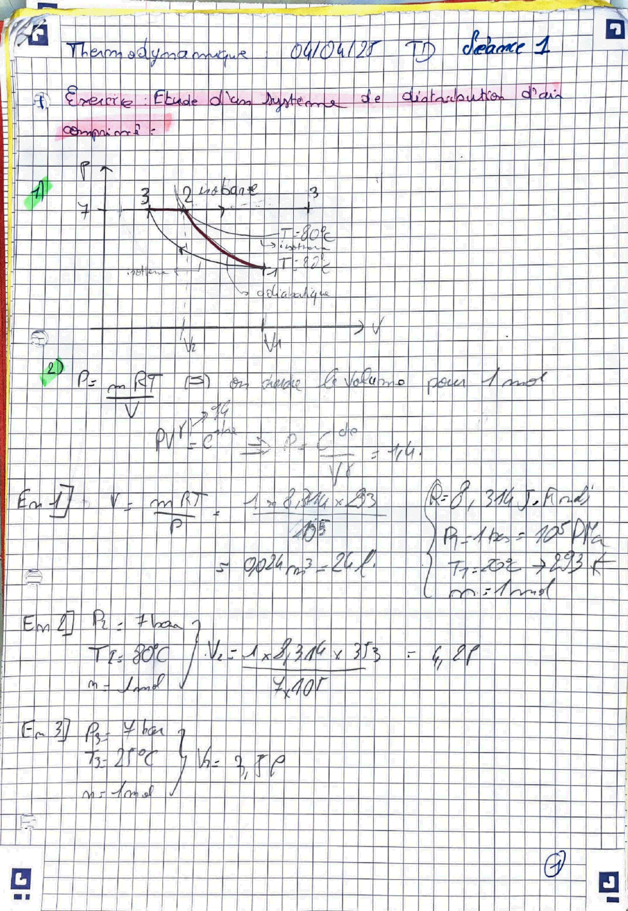 Thermodynamique 04/04/25 TD Séance 1
I. Exercice : Etude d'un systeme de distribution d'air
comprimé :
1)
P
7 3 2 isobare 3
T=80°C
1
adiabatique
V2 V1 V
2) P = nRT/V ⇔ on cherche le volume pour 1 mol
PVγ = Cste ⇒ P = Cste/Vγ = 1,4.
En 1] V = nRT/P = 1 x 8,314 x 293/10^5
= 0,024 m³ = 24 l.
R = 8,314 J.
P1 = 1 bar = 10^5 Pa
T1 = 20°C → 293 K
n = 1 mol
En 2] P2 = 7 bar
T2 = 80°C
n = 1 mol
V2 = 1 x 8,314 x 353/7x10^5 = 4,2 l
En 3] P3 = 7 bar
T3 = 25°C
n = 1 mol
= 3,5 l
1